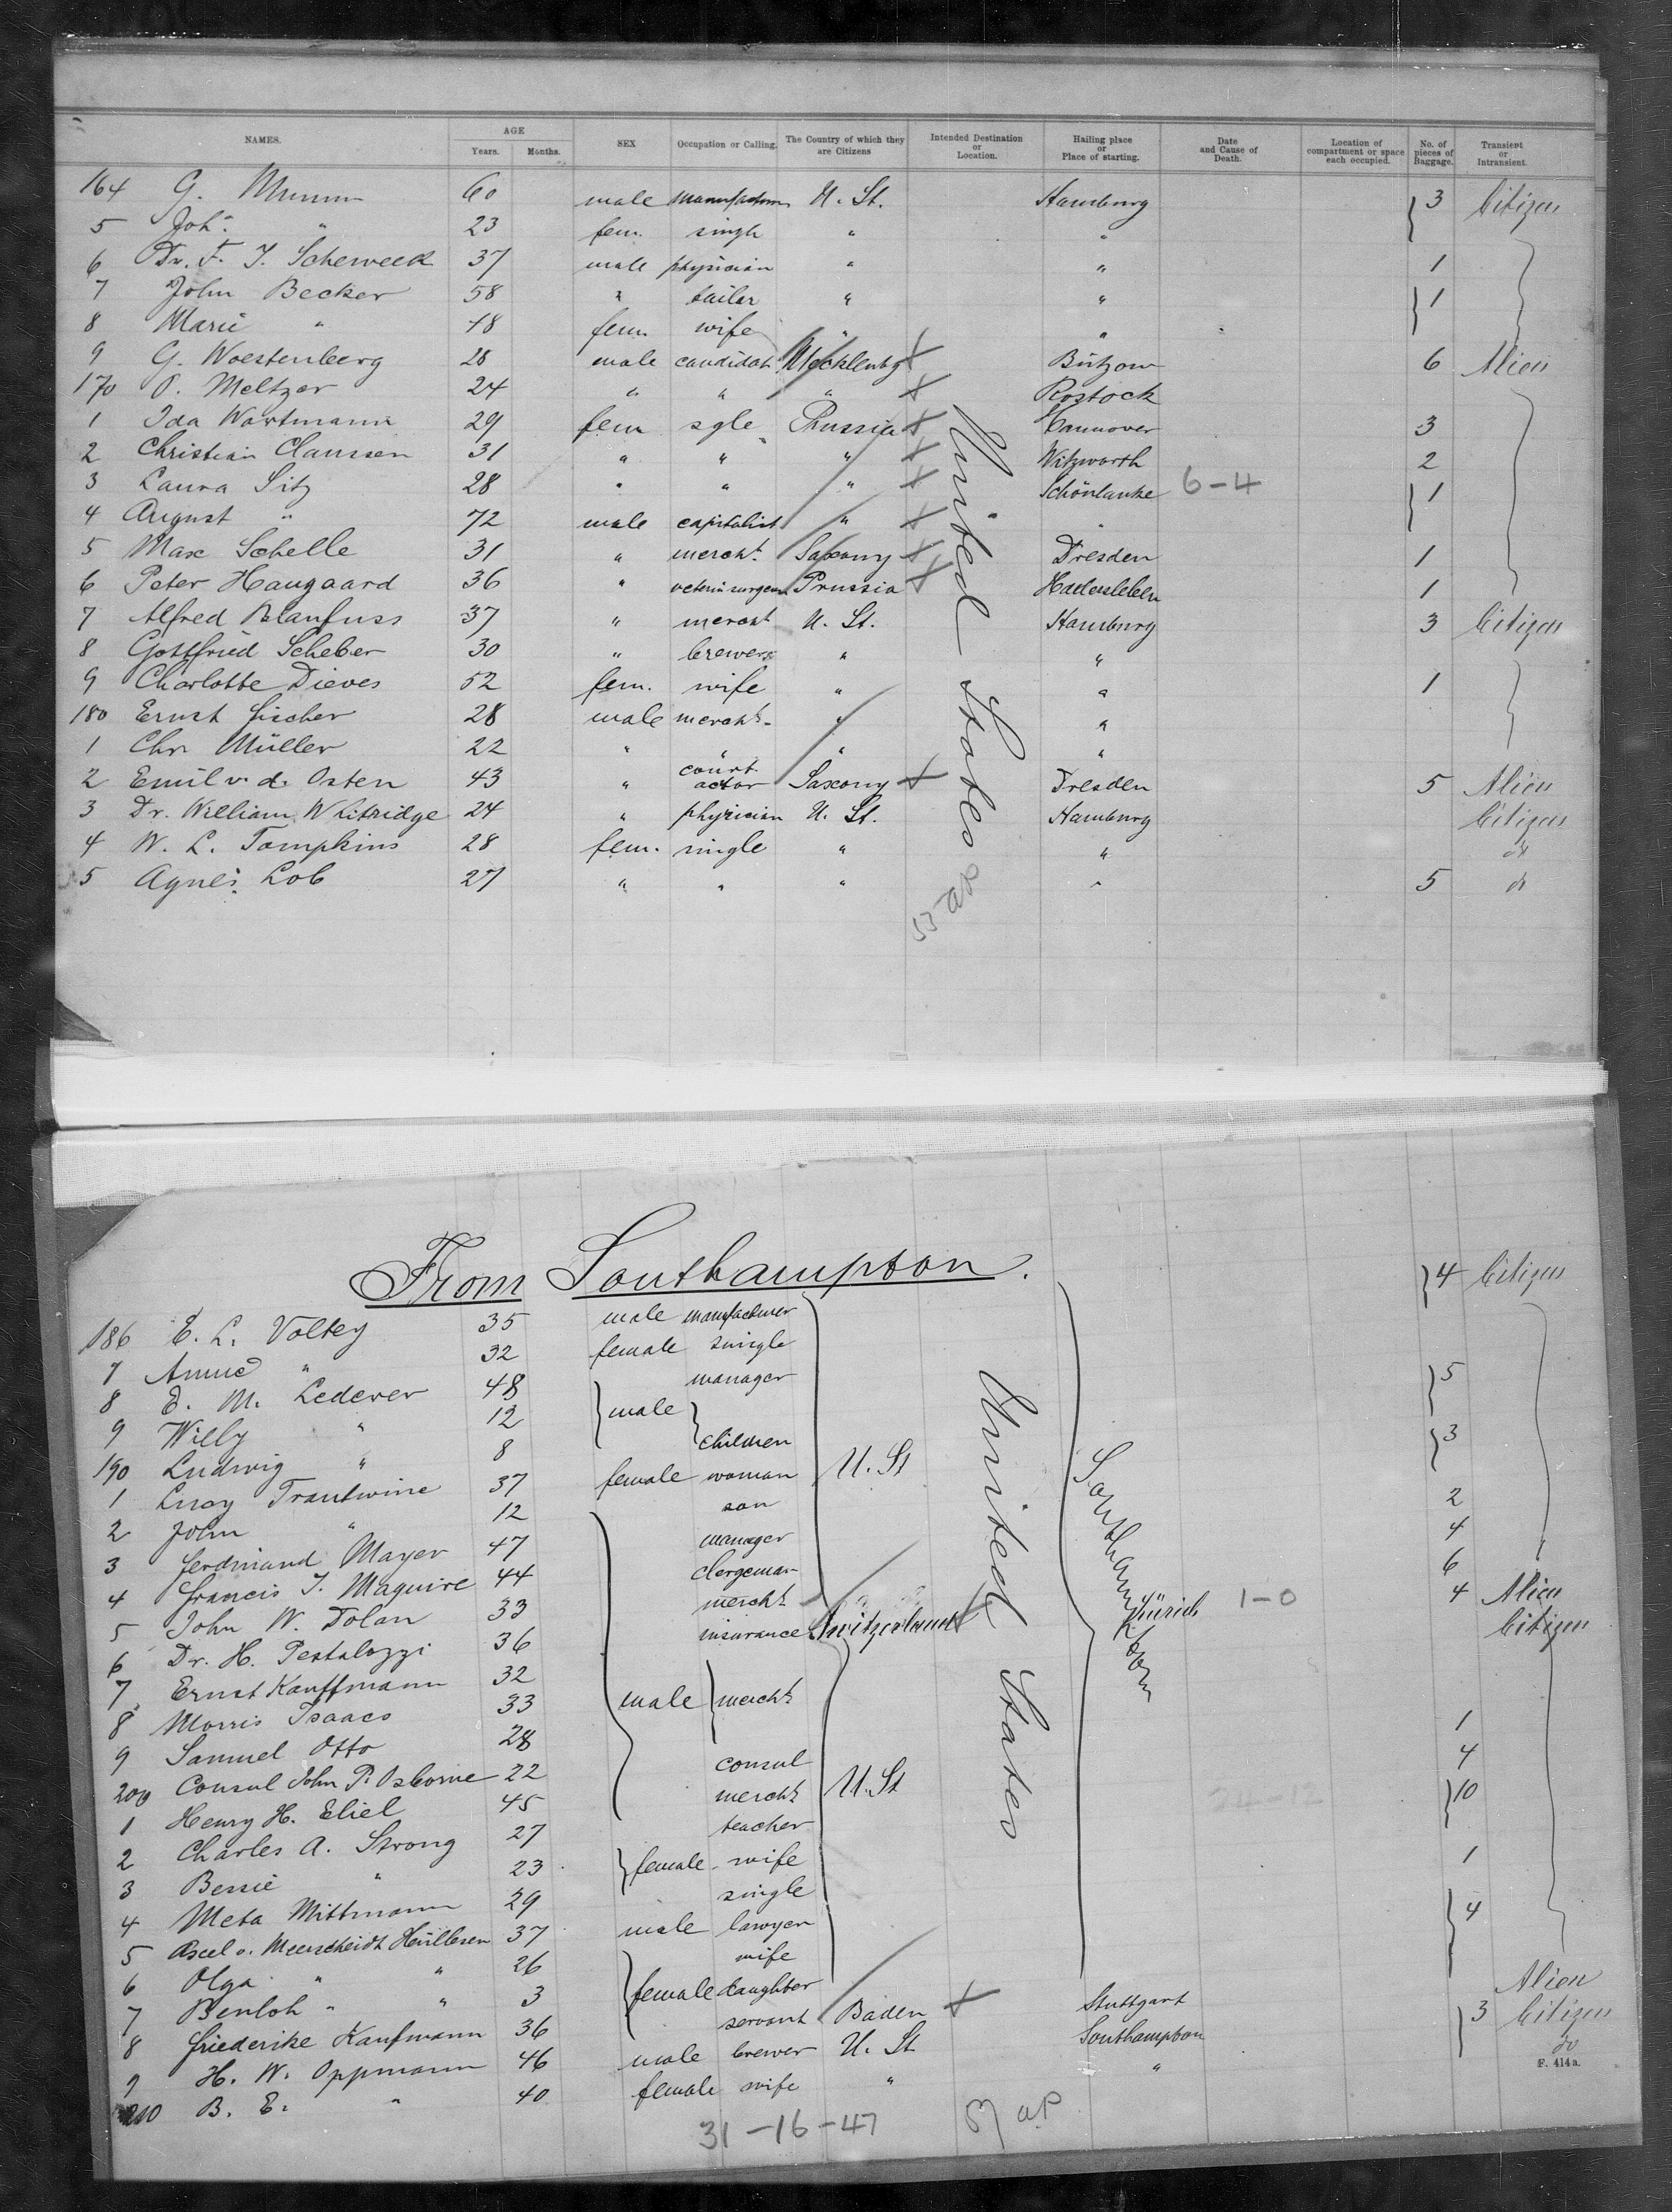 NAMES. AGE SEX Occupation or Calling. The Country of which they are Citizens Intended Destination or Location. Hailing place or Place of starting. Date and Cause of Death. Location of compartment or space each occupied. No. of pieces of Baggage. Transient or Intransient.
Years. Months.
164 G. Mumm 60 male manufacturer U. St. Hamburg 3 Citizen
5 Joh. " 23 fem. single " "
6 Dr. F. J. Scheweck 37 male physician " " 1
7 John Becker 58 " tailor " " 1
8 Marie " 48 fem. wife " "
9 G. Woestenberg 28 male candidat Mecklenbg X Bützow 6 Alien
170 O. Meltzer 24 " " " X Rostock
1 Ida Wortmann 29 fem sgle Prussia X Hannover 3
2 Christian Claussen 31 " " " X Witzworth 2
3 Laura Sitz 28 " " " X Schönlanke 6-4 1
4 August " 72 male capitalist " X "
5 Max Schelle 31 " mercht. Saxony X Dresden 1
6 Peter Haugaard 36 " veterin surgeon Prussia X Hadersleben 1
7 Alfred Blanfuss 37 " mercht U. St. Hamburg 3 Citizen
8 Gottfried Scheber 30 " brewers " "
9 Charlotte Dieves 52 fem. wife " " 1
180 Ernst Fischer 28 male mercht. " "
1 Chr. Müller 22 " " " "
2 Emil v. d. Osten 43 " court actor Saxony X Dresden 5 Alien
3 Dr. William Whitridge 24 " physician U. St. Hamburg Citizen
4 W. L. Tompkins 28 fem. single " " do
5 Agnes Lob 27 " " " " 5 do
United States
From Southampton.
186 E. L. Voltey 35 male manufacturer 4 Citizen
7 Annie " 32 female single
8 E. M. Lederer 48 male manager 5
9 Willy " 12 children
190 Ludwig " 8 3
1 Lucy Trautwine 37 female woman U. St
2 John " 12 son 2
3 Ferdinand Mayer 47 manager 4
4 Francis J. Maguire 44 clergeman 6
5 John W. Dolan 33 mercht 4
6 Dr. H. Pestalozzi 36 insurance Switzerland X Zürich 1-0 Alien
7 Ernst Kauffmann 32 male mercht Citizen
8 Morris Isaacs 33
9 Samuel Otto 28 1
200 Consul John P. Osborne 22 consul 4
1 Henry H. Eliel 45 mercht U. St 10
2 Charles A. Strong 27 teacher
3 Bessie " 23 female wife 1
4 Meta Mittmann 29 single
5 Axel v. Meerscheidt Hüllesen 37 male lawyer 4
6 Olga " " 26 female wife
7 Benloh " " 3 daughter
8 Friederike Kaufmann 36 servant Baden X Stuttgart Alien
9 H. W. Oppmann 46 male brewer U. St Southampton 3 Citizen
210 B. E. " 40 female wife " " do
United States
Southampton
F. 414 a.
31-16-47